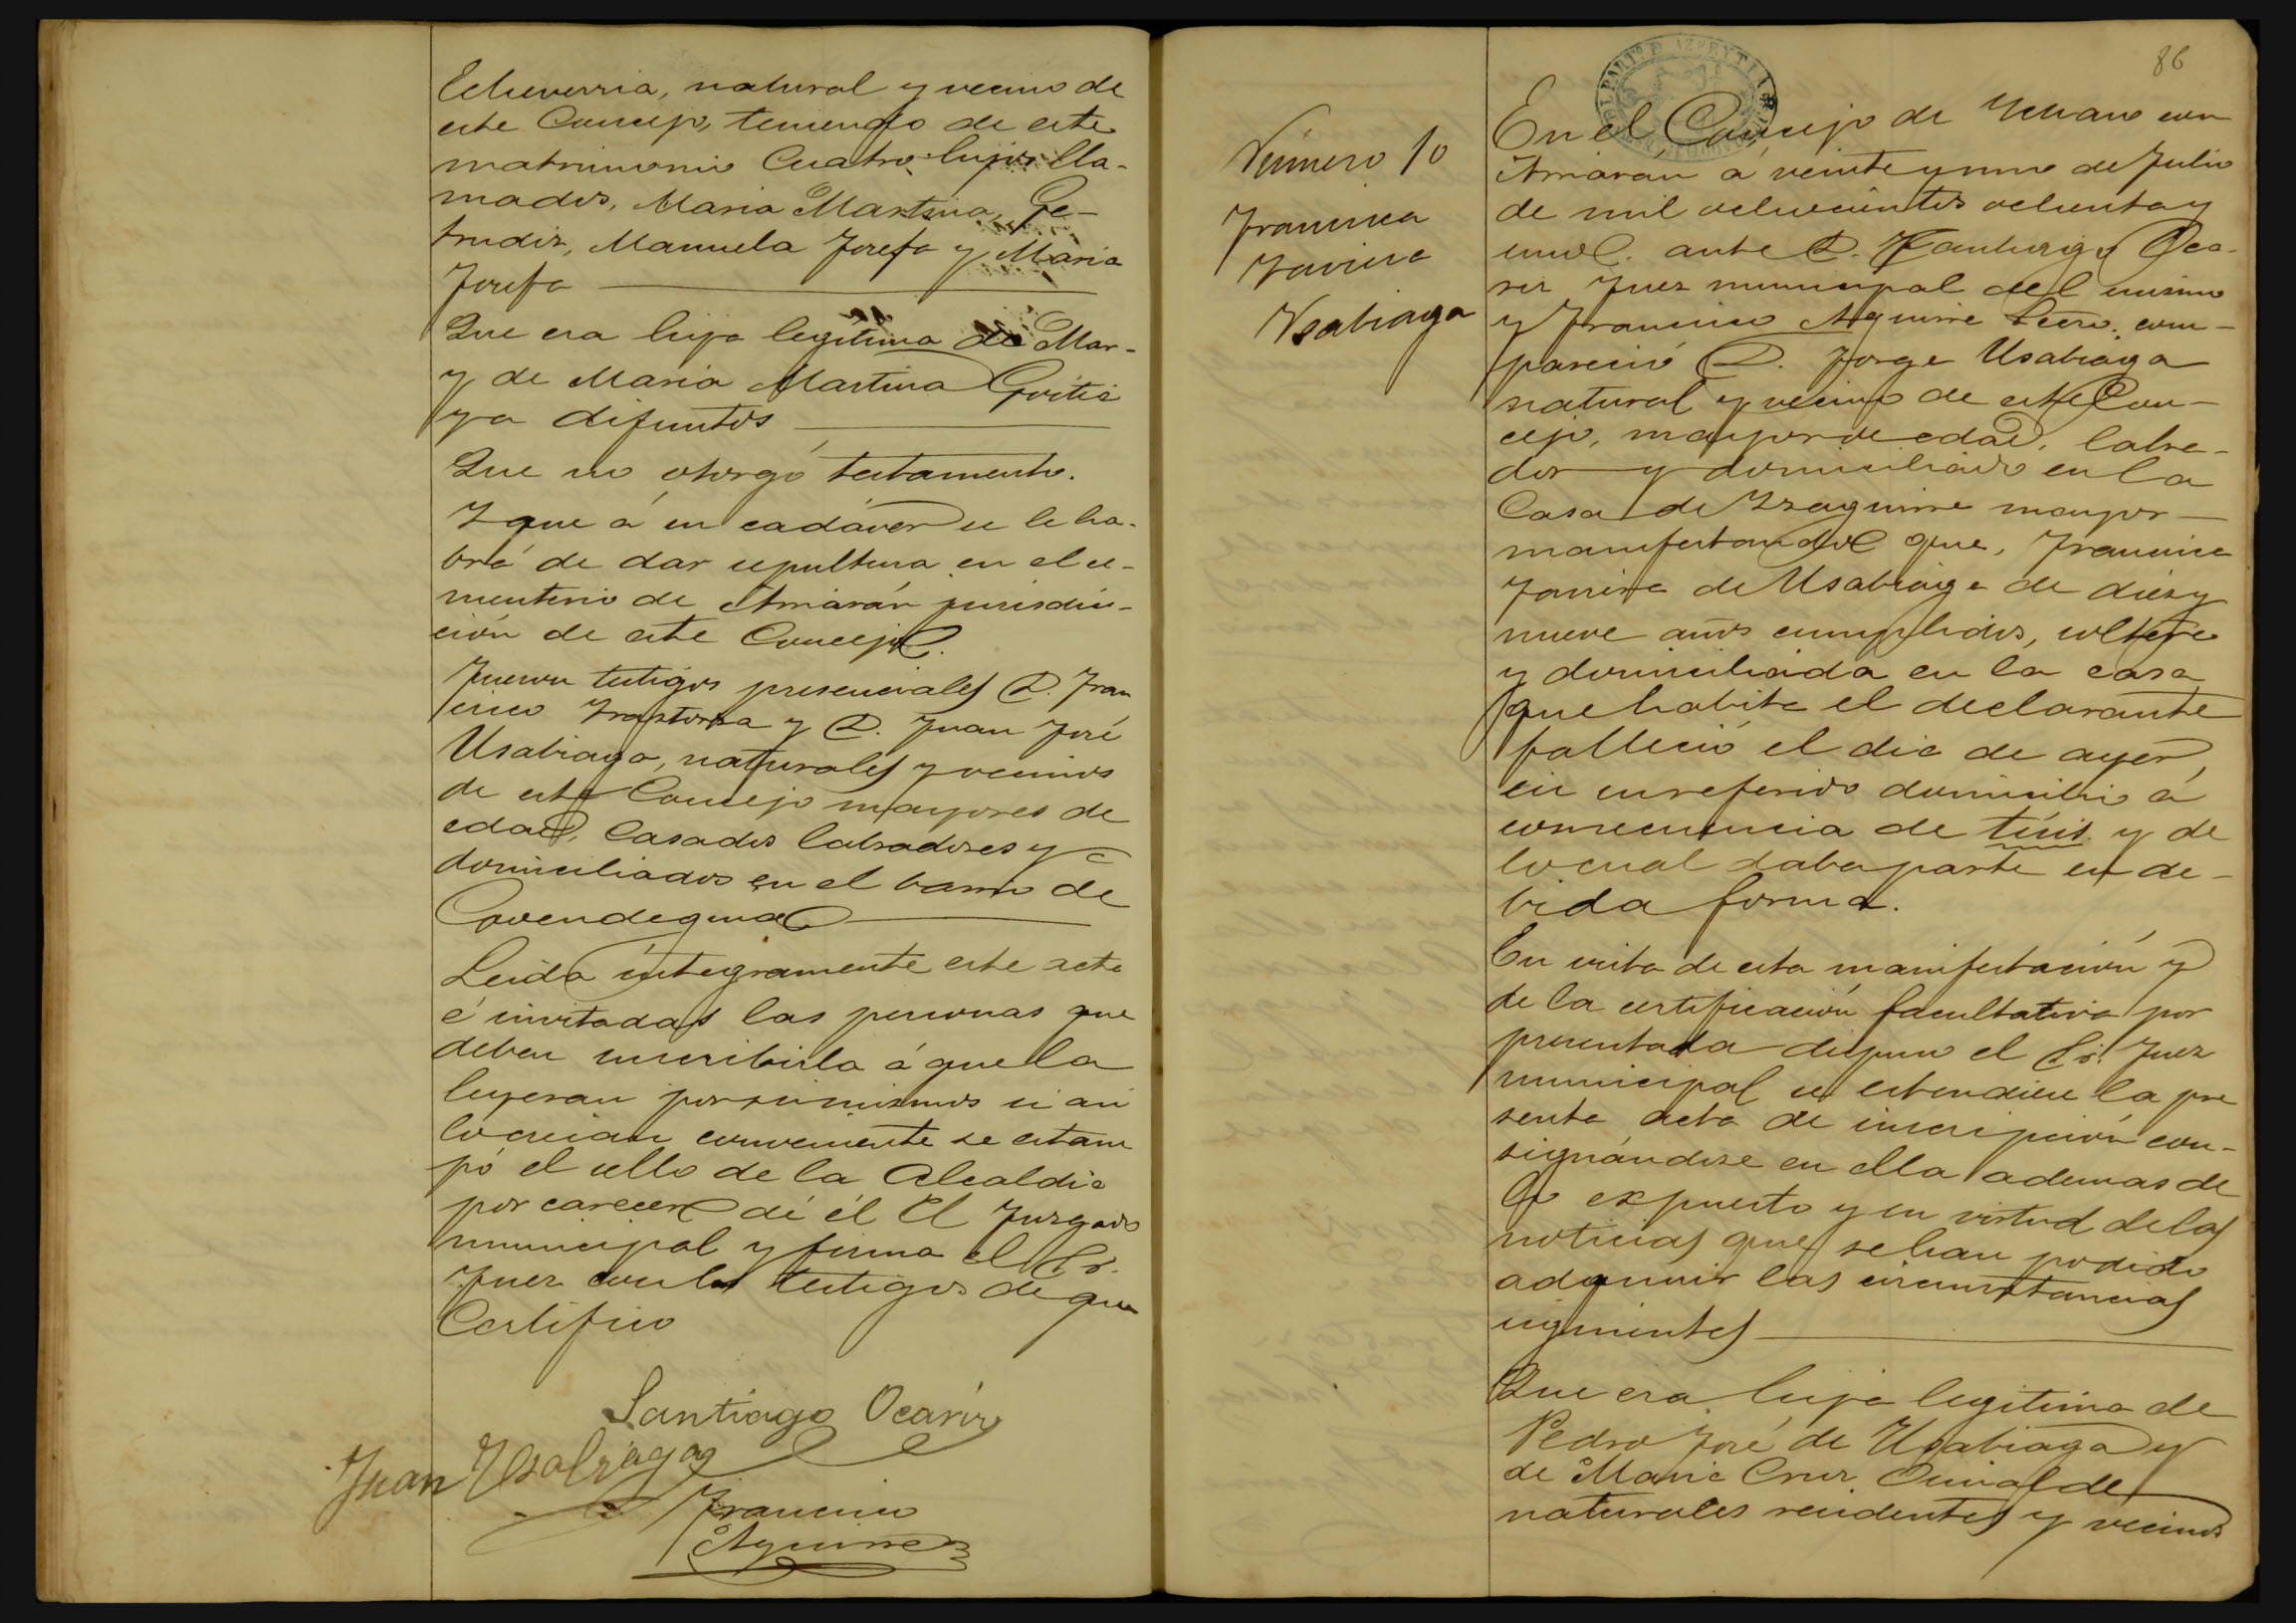 Echeverria, natural y vecino de
este Concejo, teniendo de este
matrimonio Cuatro hijos lla-
mados, Maria Martina, Ge-
trudis, Manuela Josefa y Maria
Josefa
Que era hija legítima de Mar-
y de Maria Martina Goitia
ya difuntos
Que no otorgó testamento.
Y que á su cadáver se le ha-
brá de dar sepultura en el ce-
menterio de Arriarán jurisdic-
ción de este Concejo.
Fueron testigos presenciales D. Fran
cisco Irastorza y D. Juan José
Usabiaga, naturales y vecinos
de este Concejo mayores de
edad, Casados labradores y
domiciliados en el barrio de
Leida íntegramente este acta
é invitadas las personas que
deben suscribirla á que la
leyeran por si mismos si asi
lo creian conveniente se estam
pó el sello de la Alcaldia
por carecer de él El Juzgado
municipal y firma el Sr.
Juez con los testigos de que
Certifico
Santiago Ocariz
Juan Usabiaga
Francisco
Aguirre
86
Número 10
Francisca
Javiera
Usabiaga
En el Concejo de Ichaso con
Arriarán á veinte y uno de Julio
de mil ochocientos ochenta y
uno. ante D. Santiago Oca-
riz Juez municipal del mismo
y Francisco Aguirre Secro. com-
pareció D. Jorge Usabiaga
natural y vecino de este Con-
cejo, mayor de edad, labra-
dor y domiciliado en la
Casa de Izaguirre mayor
manifestando que, Francisca
Javiera de Usabiaga de diez y
nueve años cumplidos, soltera
y domiciliada en la casa
que habita el declarante
falleció el dia de ayer,
en su referido domicilio á
consecuencia de tisis y de
lo cual daba parte en de-
bida forma.
En vista de esta manifestación y
de la certificación facultativa por
presentada dispuso el Sr. Juez
municipal se estendiese la pre
sente acta de inscripción con-
signándose en ella ademas de
lo expuesto y en virtud de las
noticias que se han podido
adquirir las circunstancias
siguientes
Que era hija legitima de
Pedro José de Usabiaga y
de Maria Cruz
naturales residentes y vecinos